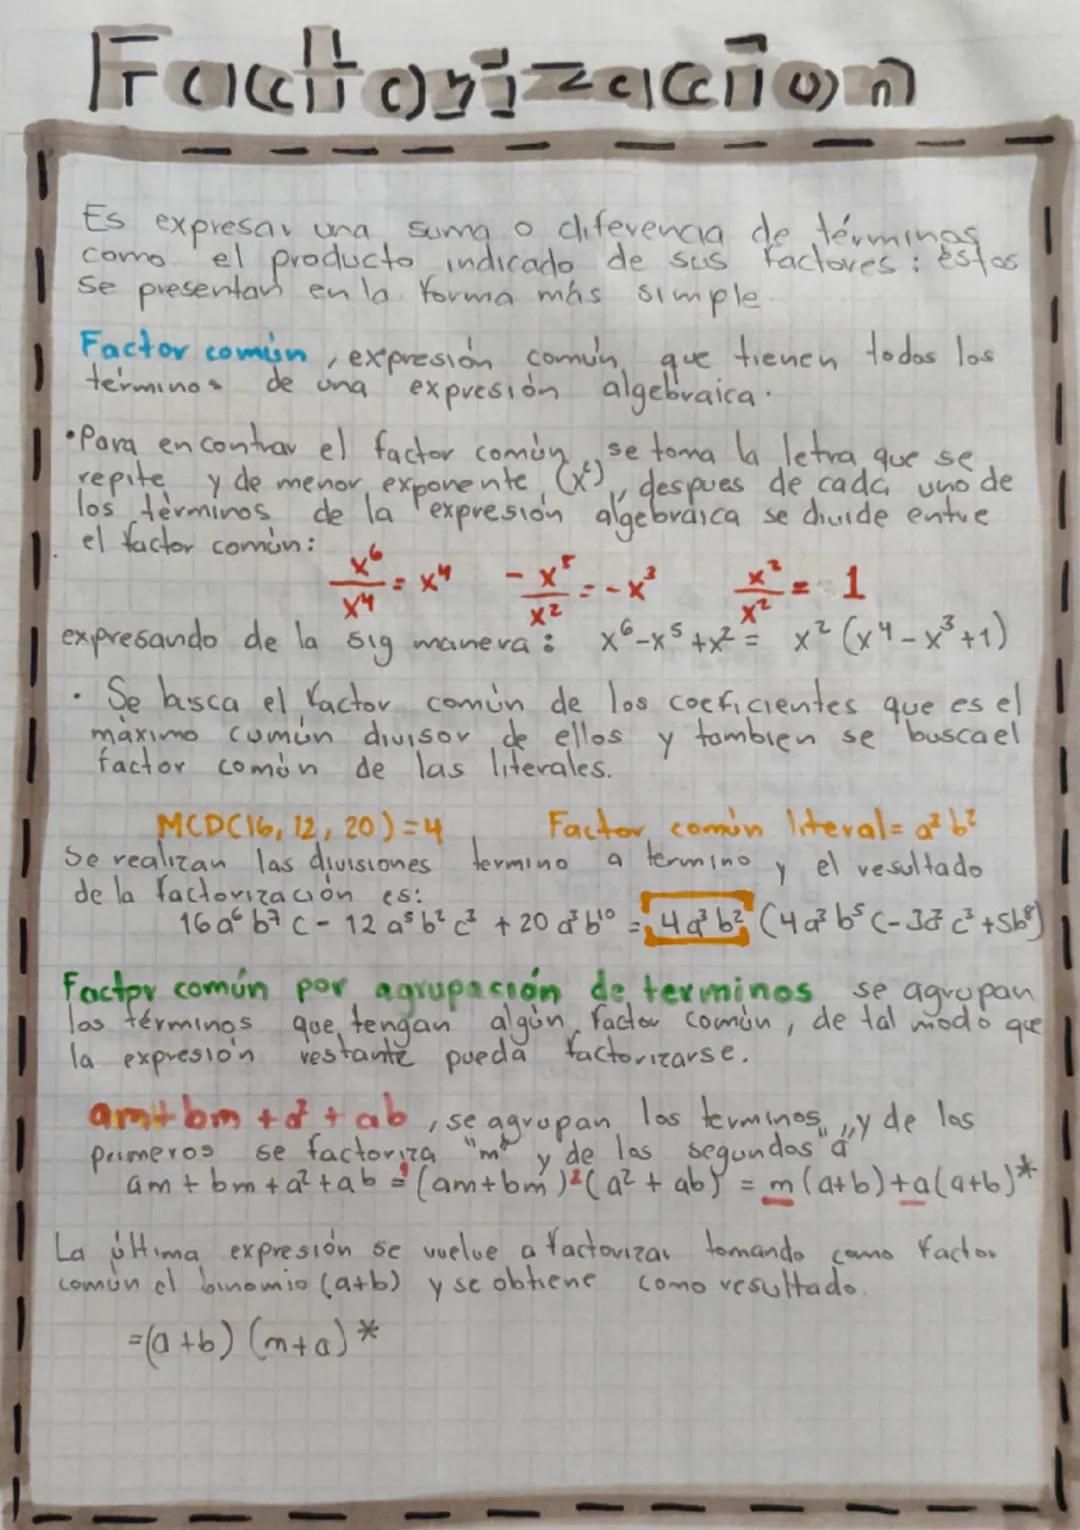 Factorización
Es expresar una suma o diferencia de términos
como el producto indicado de sus factores; éstos
se presentan en la forma más simple.
Factor común, expresión común, que tienen todos los
términos de una expresión algebraica.
•Para encontrar el factor común, se toma la letra que se
repite y de menor exponente (x²), despues de cada uno de
los términos de la expresión algebraica se divide entre
el factor común:
x⁶/x⁴ = x⁴ -x⁵/x² = -x³ x²/x² = 1
expresando de la sig manera: x⁶-x⁵+x² = x²(x⁴-x³+1)
• Se busca el factor común de los coeficientes que es el
máximo común divisor de ellos y tambien se busca el
factor común de las literales.
MCD(16, 12, 20) = 4 Factor común literal = a³b²
Se realizan las divisiones termino a termino y el resultado
de la factorización es:
16a⁶b⁷c - 12a⁵b²c³ + 20a³b¹⁰ = 4a³b² (4a³b⁵c-3a²c³+5b⁸)
Factor común por agrupación de terminos se agrupan
los términos que tengan algún factor común, de tal modo que
la expresión restante pueda factorizarse.
am+bm+a²+ab, se agrupan los terminos, y de los
primeros se factoriza "m" y de los segundos "a"
am+bm+a²+ab =¹(am+bm)+²(a²+ab) = m(a+b)+a(a+b)*
La última expresión se vuelve a factorizar tomando como factor
común el binomio (a+b) y se obtiene como resultado.
=(a+b)(m+a)*